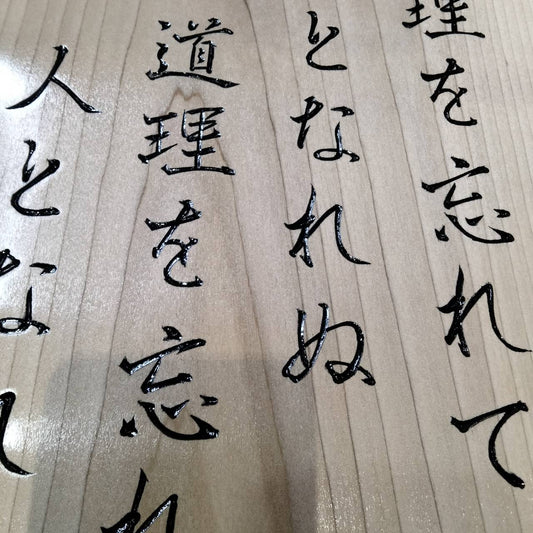 理を忘れて
となれぬ
道理を忘れ
人となれ